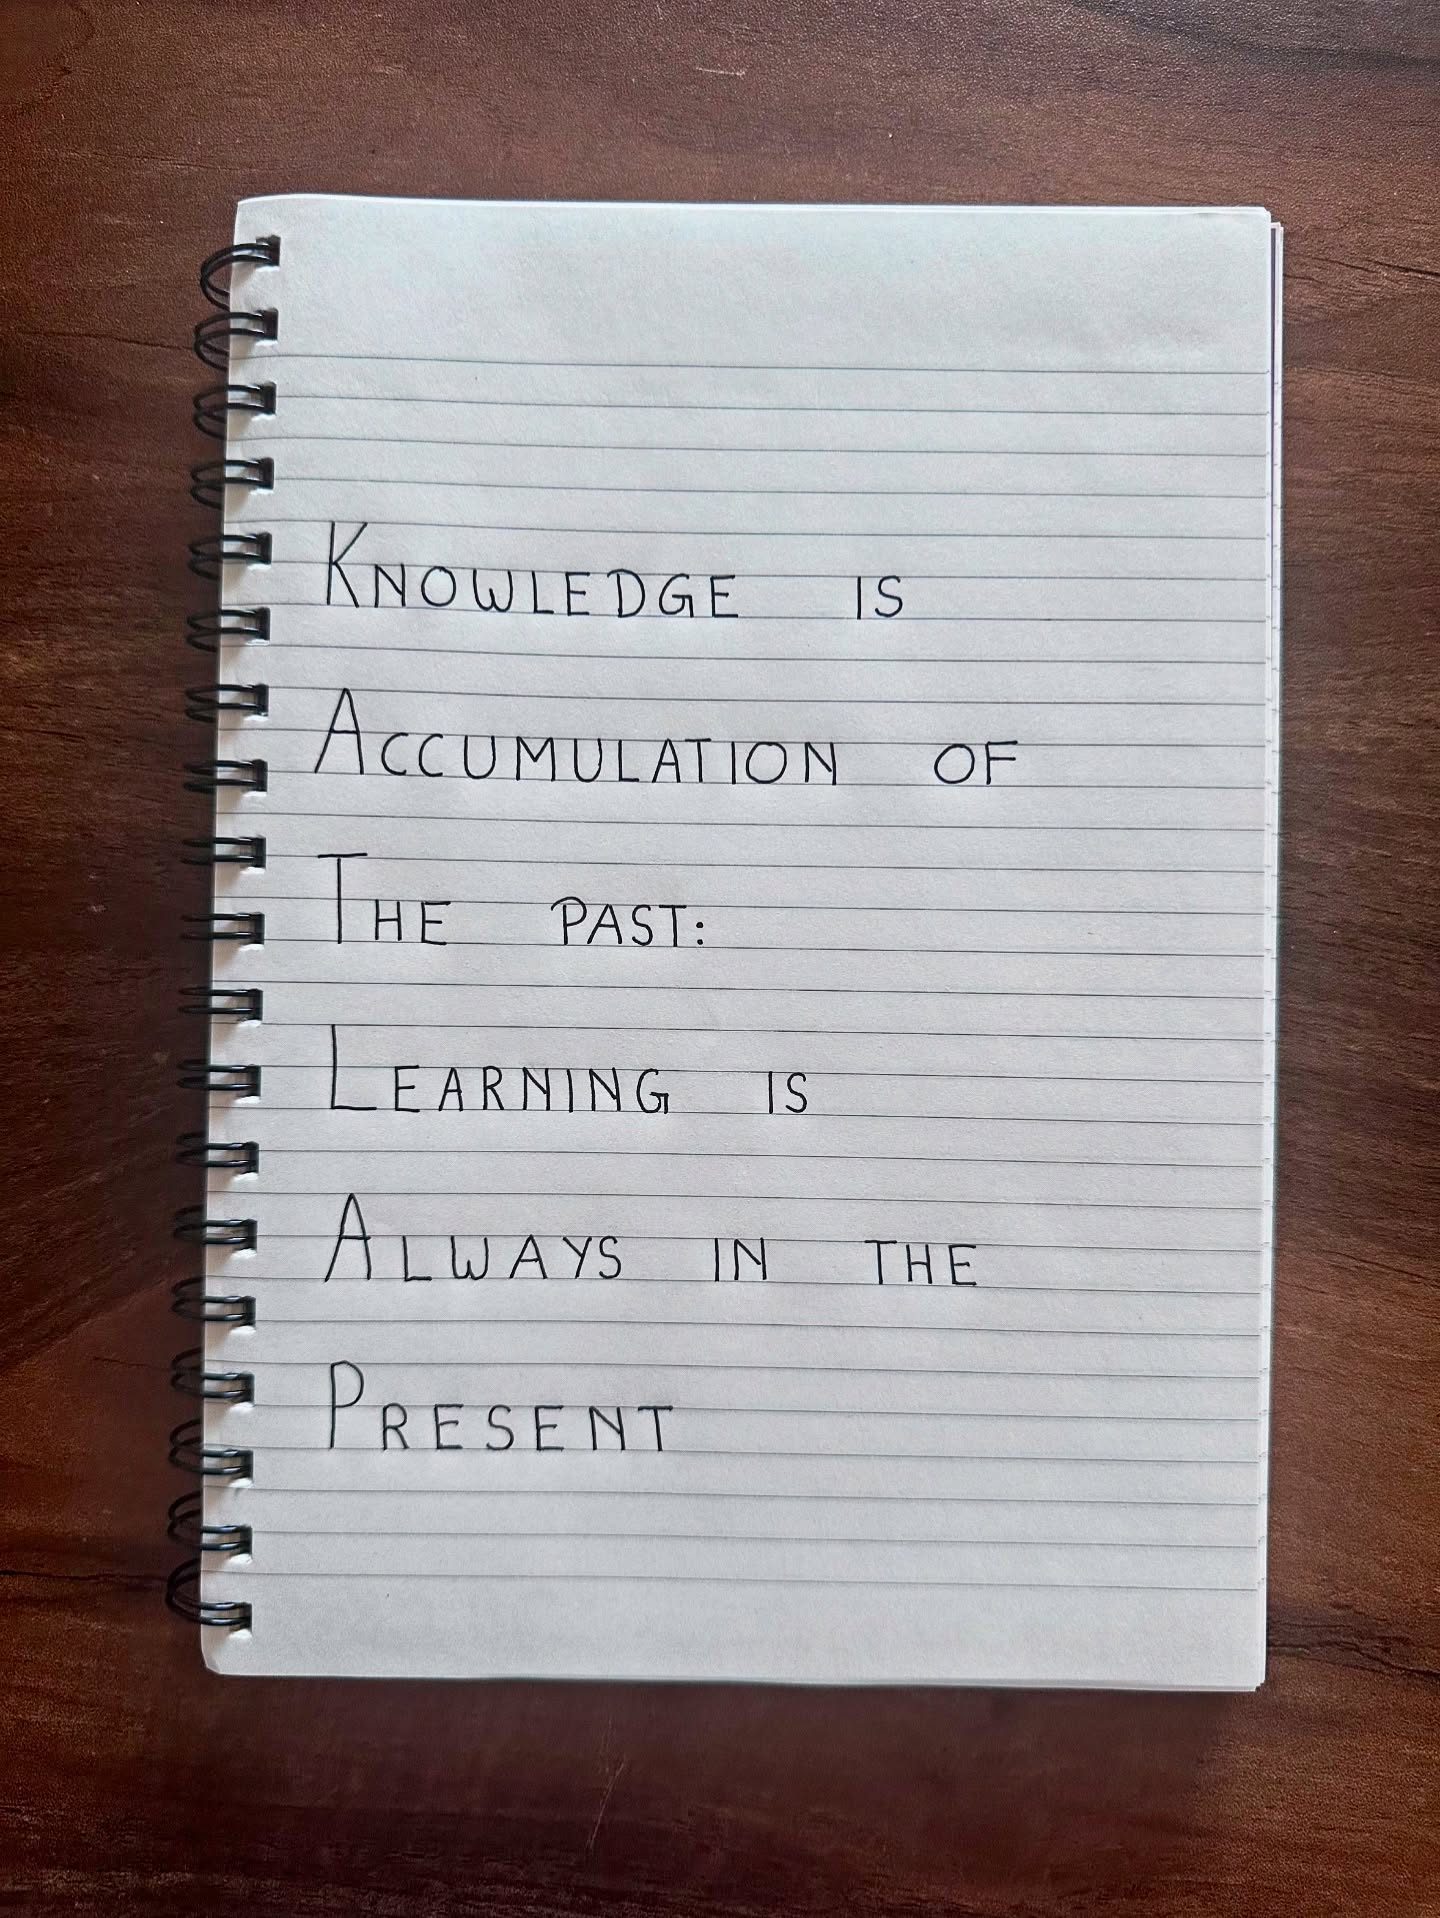 KNOWLEDGE IS
ACCUMULATION OF
THE PAST:
LEARNING IS
ALWAYS IN THE
PRESENT